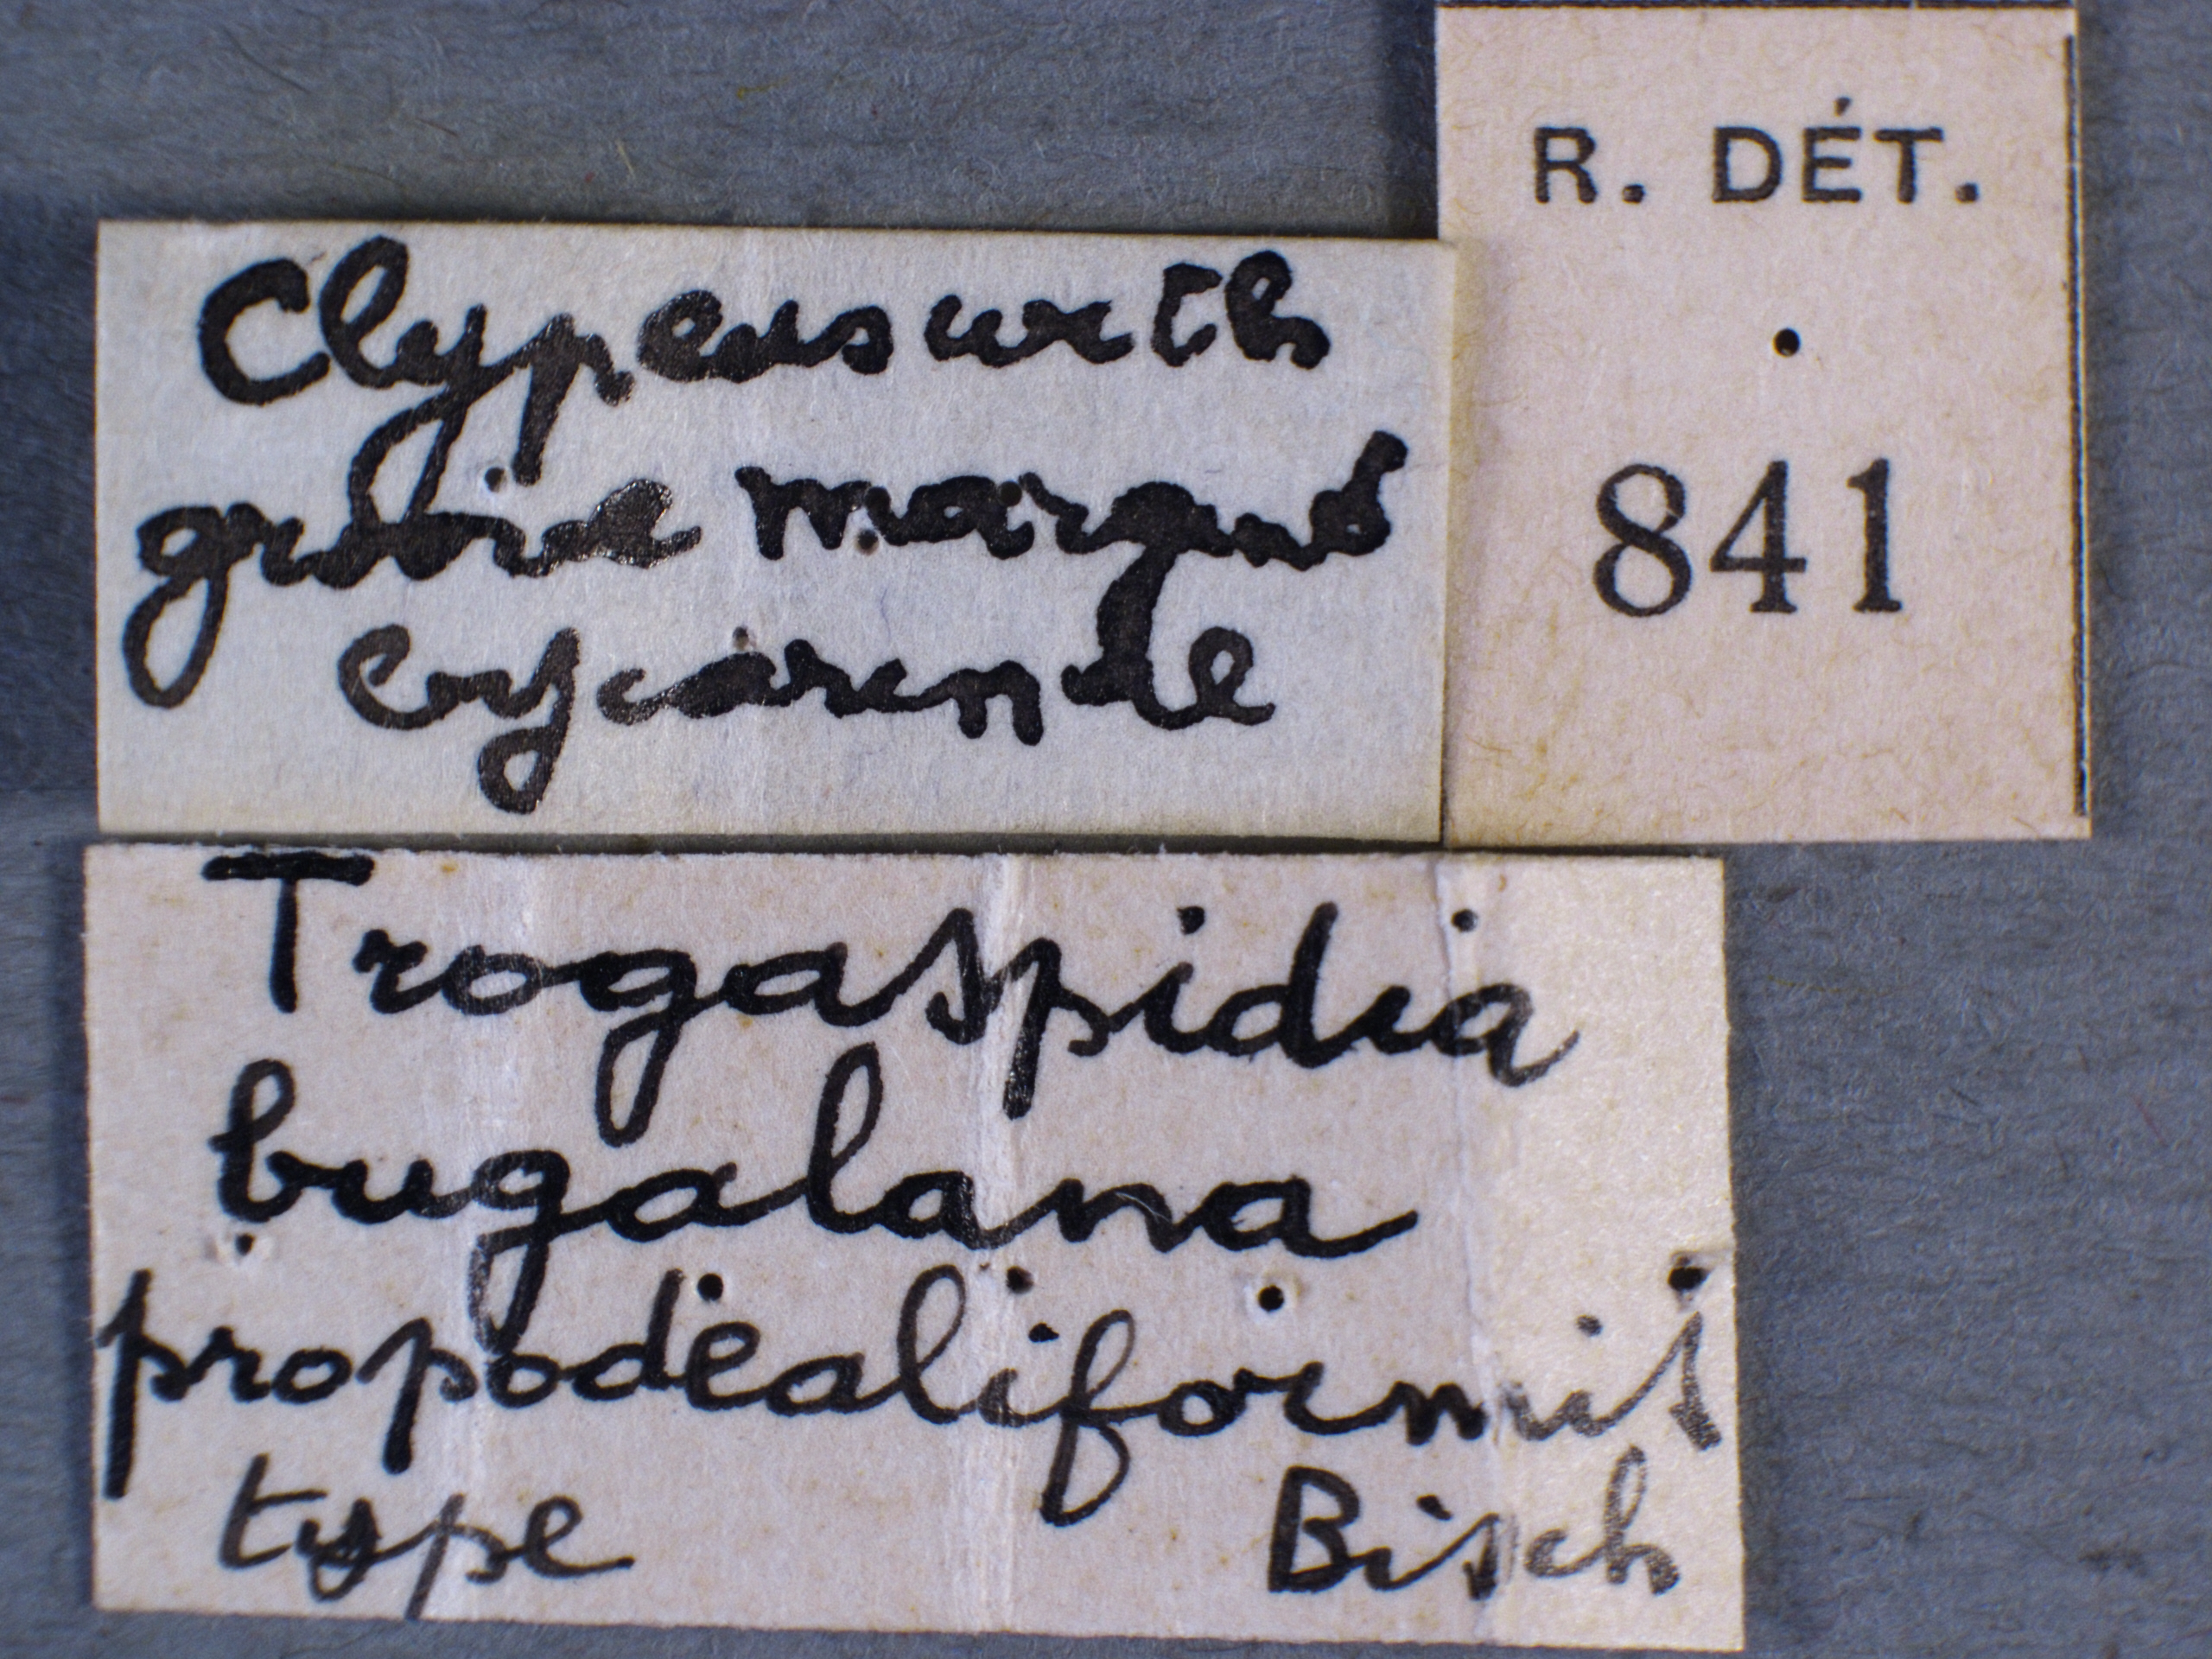 Clypeus with
groove margins
R. DÉT.
841
Trogaspidia
bugalana
propodealiformis
type Bisch